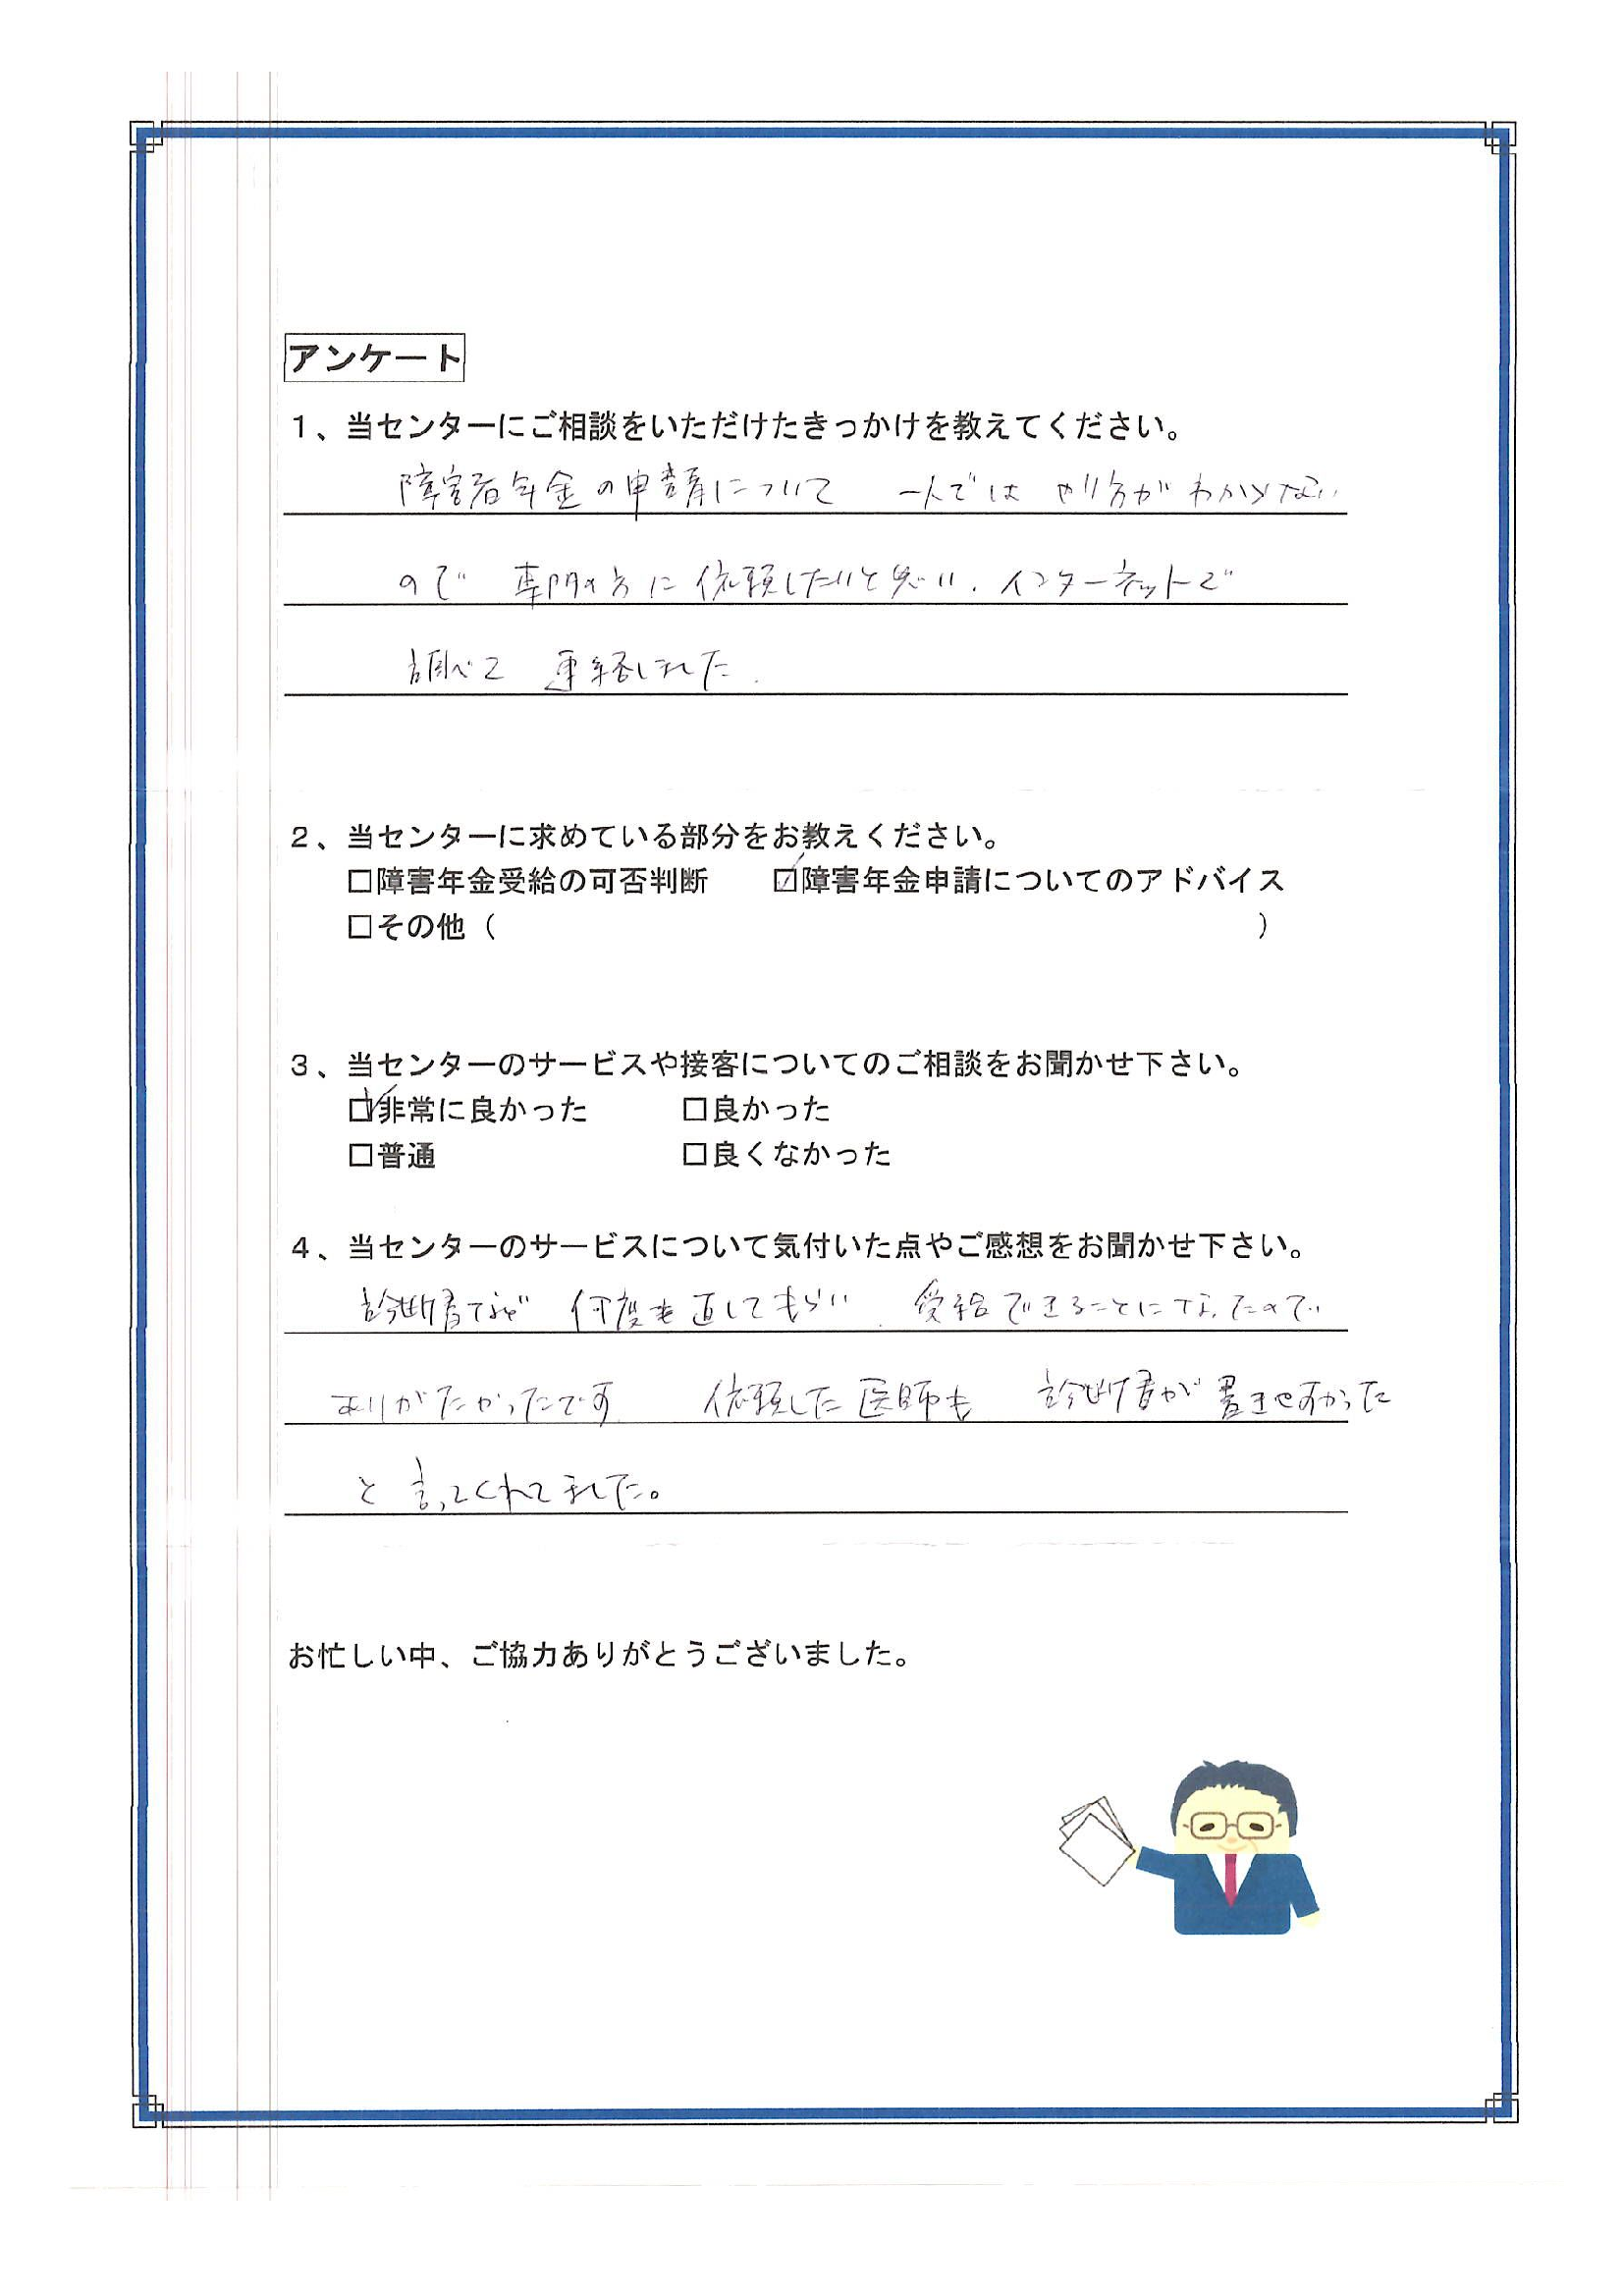 アンケート
1、当センターにご相談をいただけたきっかけを教えてください。
障害者年金の申請について 一人では やり方が わからない
ので 専門の方に 依頼したいと思い、インターネットで
調べて 連絡しました.
2、当センターに求めている部分をお教えください。
□障害年金受給の可否判断 ☑障害年金申請についてのアドバイス
□その他（ ）
3、当センターのサービスや接客についてのご相談をお聞かせ下さい。
☑非常に良かった □良かった
□普通 □良くなかった
4、当センターのサービスについて気付いた点やご感想をお聞かせ下さい。
診断書など 何度も 直してもらい 受給できることになったので
ありがたかったです 依頼した医師も 診断書が 書きやすかった
と 言ってくれてました。
お忙しい中、ご協力ありがとうございました。